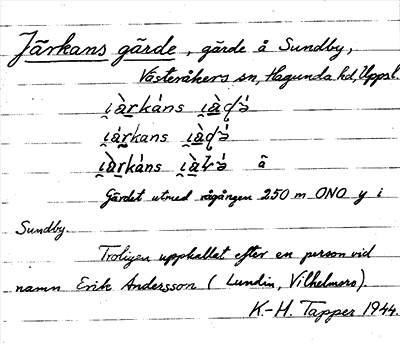 Järkans gärde, gärde å Sundby,
Västeråkers sn, Hagunda hd, Uppsl.
i̯àrkáns i̯àḍə́
i̯árkans i̯àḍə́
i̯àrkáns i̯àɽə́ å
Gärdet utmed rågången 250 m ONO y i
Sundby.
Troligen uppkallat efter en person vid
namn Erik Andersson (Lundin, Vilhelmsro).
K.-H. Tapper 1944.